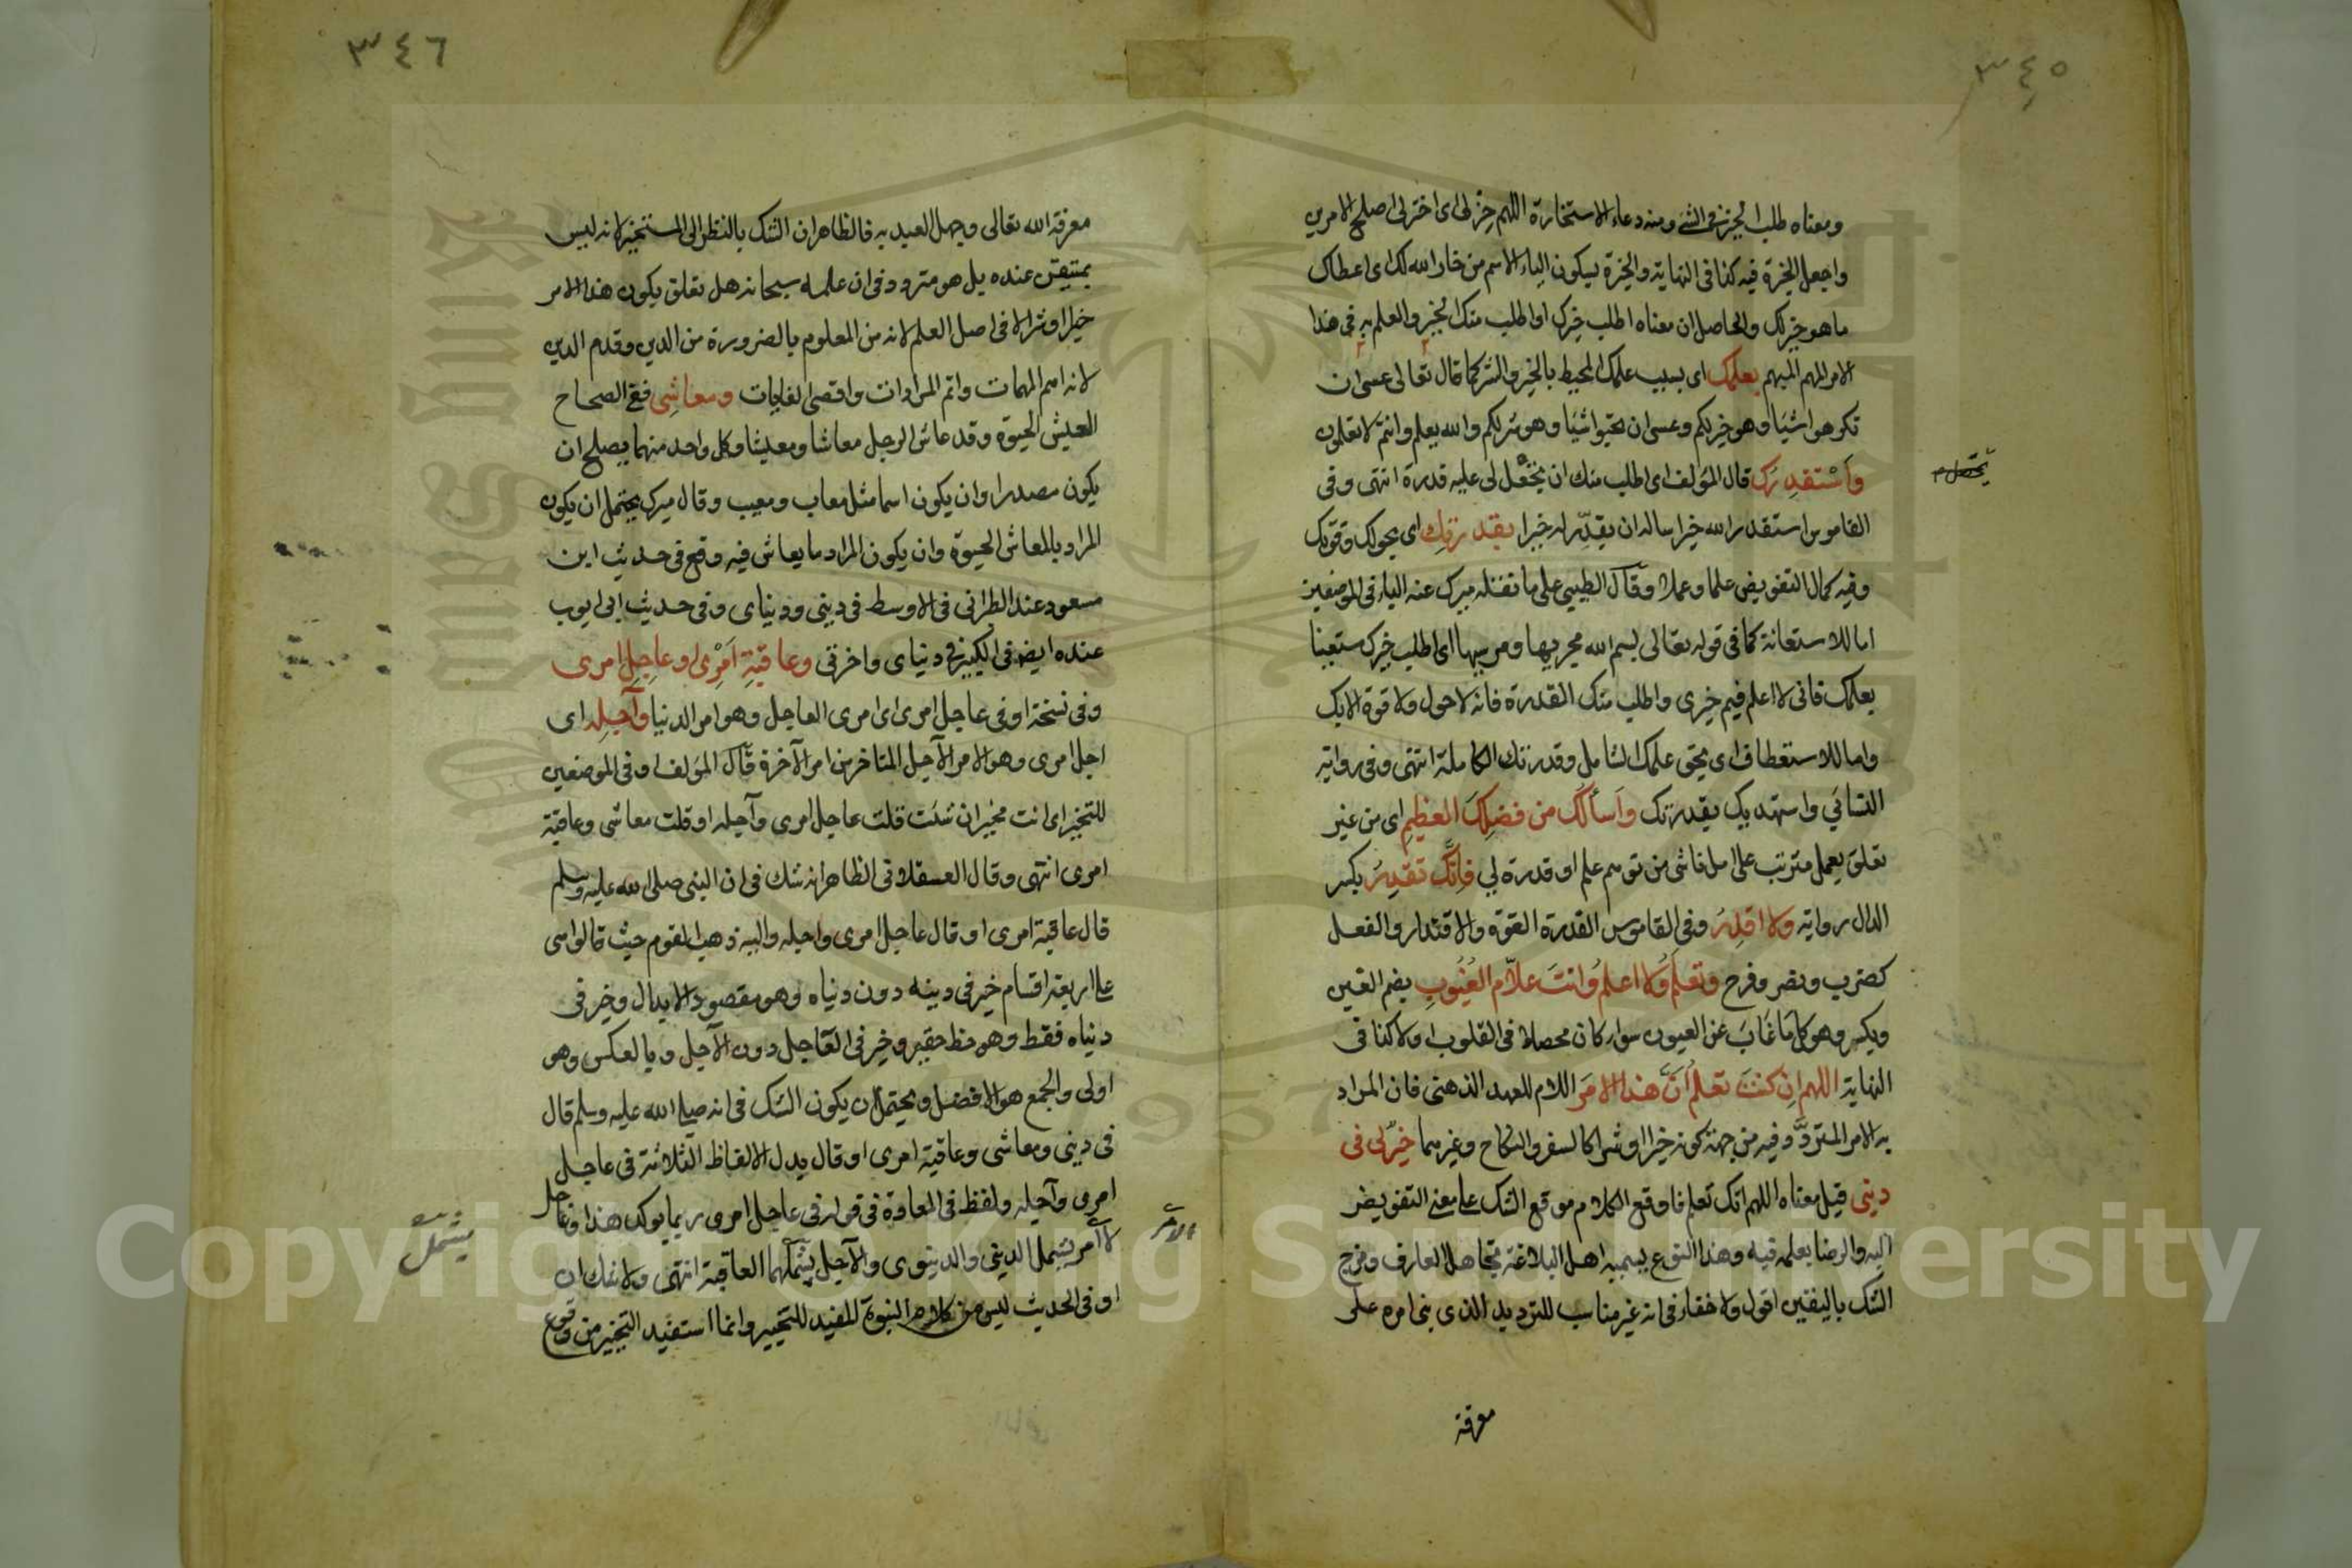 ٣٤٥
ومعناه طلب الخير في الشئ ومنه دعاء الاستخارة اللهم خر لي اى اختر لي اصلح الامرين
واجعل الخيرة فيه كذا في النهاية والخيرة بسكون الياء الاسم من خار الله لك اى اعطاك
ما هو خير لك والحاصل ان معناه اطلب خيرك او اطلب منك الخير والعلم به في هذا
الامر المهم المبهم بعلمك اى بسبب علمك المحيط بالخير والشر كما قال تعالى عسى ان
تكرهوا شيئا وهو خير لكم وعسى ان تحبوا شيئا وهو شر لكم والله يعلم وانتم لا تعلمون
واستقدرك قال المؤلف اى اطلب منك ان تجعل لى عليه قدرة انتهى وفي
القاموس استقدر الله خيرا ساله ان يقدّر له خيرا بقدرتك اى بحولك وقوتك
وفيه كمال التفويض علما وعملا وقال الطيبي على ما نقله ميرك عنه الباء في الموضعين
اما للاستعانة كما في قوله تعالى بسم الله مجريها ومرسيها اى اطلب خيرك مستعينا
بعلمك فاني لا اعلم فيم خيرى واطلب منك القدرة فانه لا حول ولا قوة الا بك
واما للاستعطاف اى بحق علمك الشامل وقدرتك الكاملة انتهى وفي رواية
النسائي واستهديك بقدرتك واسألك من فضلك العظيم اى من غير
تعلق بعمل مترتب على امل ناشى من توهم علم او قدرة لي فانّك تقدر بكسر
الدال رواية ولا اقدر وفي القاموس القدرة القوة والاقتدار والفعل
كضرب ونصر وفرح وتعلم ولا اعلم وانت علّام الغيوب بضم الغين
ويكسر وهو كل ما غاب عن العيون سواء كان محصلا في القلوب او لا كذا في
النهاية اللهم ان كنت تعلم انّ هذا الامر اللام للعهد الذهني فان المراد
به الامر المتردّد فيه من جهة كونه خيرا او شرا كالسفر والنكاح وغيرهما خير لى في
ديني قيل معناه اللهم انك تعلم فاوقع الكلام موقع الشك على معنى التفويض
اليه والرضا بعلمه فيه وهذا النوع يسميه اهل البلاغة تجاهل العارف ومزج
الشك باليقين اقول ولا خفاء في انه غير مناسب للترديد الذي بني امره على
معرفة
٣٤٦
معرفة الله تعالى وجهل العبد به فالظاهر ان الشك بالنظر الى المستخير لانه ليس
بمتيقن عنده بل هو متردد في ان علمه سبحانه هل تعلق بكون هذا الامر
خيرا او شرا لا في اصل العلم لانه من المعلوم بالضرورة من الدين وقدم الدين
لانه اهم المهمات واتم المرادات واقصى الغايات ومعاشى ففي الصحاح
العيش الحيوة وقد عاش الرجل معاشا ومعيشا وكل واحد منهما يصلح ان
يكون مصدرا وان يكون اسما مثل معاب ومعيب وقال ميرك يحتمل ان يكون
المراد بالمعاش الحيوة وان يكون المراد ما يعاش فيه وقع في حديث ابن
مسعود عند الطبراني في الاوسط في ديني ودنياى وفي حديث ابي ايوب
عنده ايضا في الكبير في دنياى واخرتي وعاقبة امرى او عاجل امرى
وفي نسخة او في عاجل امرى اى امرى العاجل وهو امر الدنيا وآجله اى
اجل امرى وهو الامر الآجل المتاخر من امر الآخرة قال المؤلف او في الموضعين
للتخيير اى انت مخير ان شئت قلت عاجل امرى وآجله او قلت معاشى وعاقبة
امرى انتهى وقال العسقلاني الظاهر انه شك في ان النبى صلى الله عليه وسلم
قال عاقبة امرى او قال عاجل امرى واجله واليه ذهب القوم حيث قالوا هى
على اربعة اقسام خير في دينه دون دنياه وهو مقصود الابدال وخير في
دنياه فقط وهو حظ حقير وخير في العاجل دون الآجل وبالعكس وهو
اولى والجمع هو الافضل ويحتمل ان يكون الشك في انه صلى الله عليه وسلم قال
في ديني ومعاشى وعاقبة امرى او قال بدل الالفاظ الثلاثة في عاجل
امرى وآجله ولفظ في المعادة في قوله في عاجل امرى ربما يؤكد هذا وعاجل
الامر
الامر يشمل الديني والدنيوى والآجل يشملهما العاقبة انتهى ولا
يشمل
او في الحديث ليس من كلام النبوة المفيد للتخيير وانما استفيد التخيير من وقوع